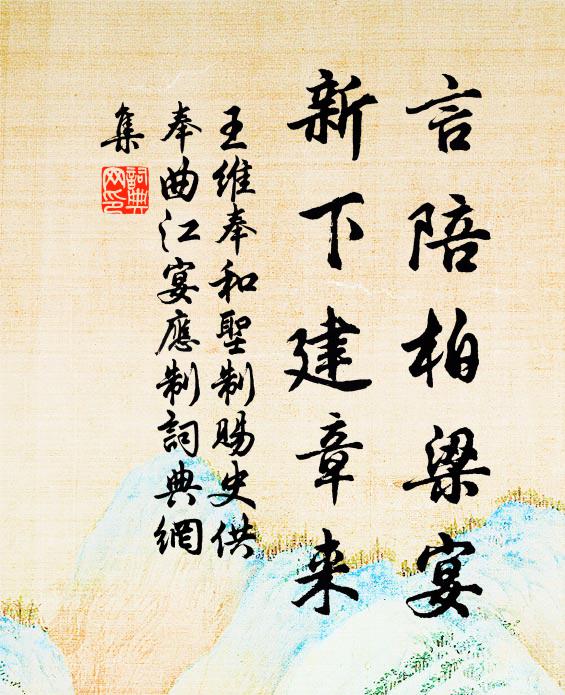 言陪柏梁宴
新下建章来
王维奉和聖制賜史供
奉曲江宴應制詞典網
集
詞典
网印